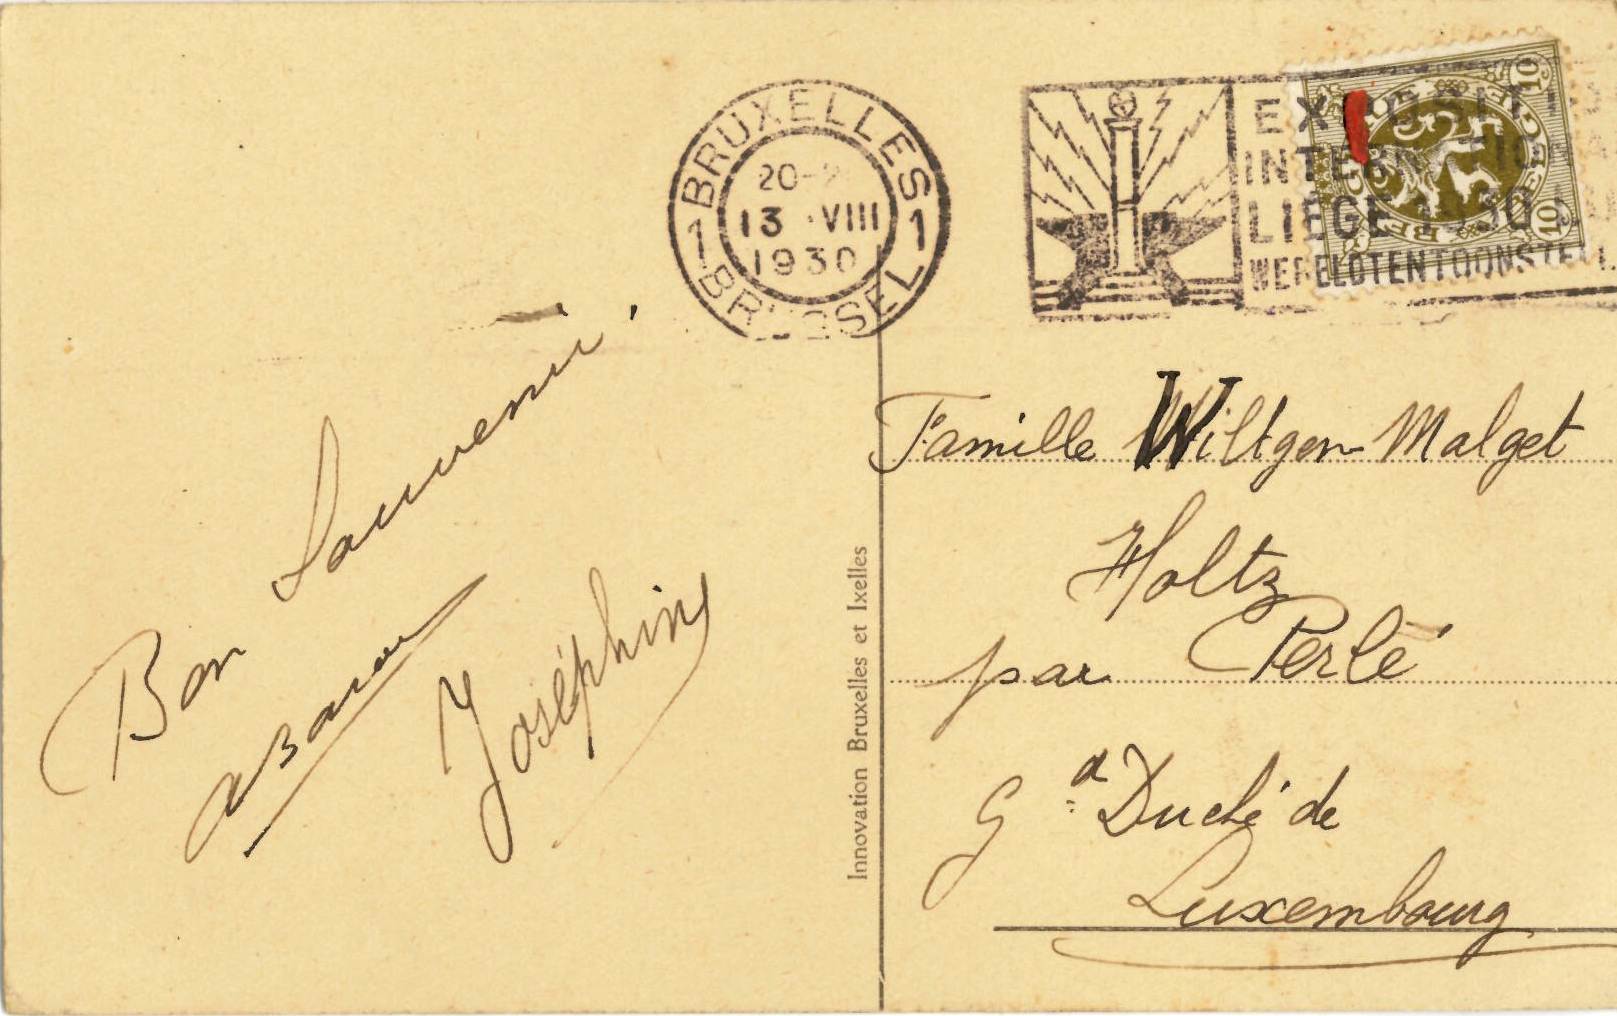 BRUXELLES
20-2
13 VIII
1930
1 1
BRUSSEL
EXPOSIT
INTERNATIONA
LIEGE 1930
WERELDTENTOONSTELL.
10
10
BELGIQUE
Bon Souvenir.
Joséphine
Innovation Bruxelles et Ixelles
Famille Wiltgen-Malget
Holtz
par Perlé
Gd Duché de
Luxembourg